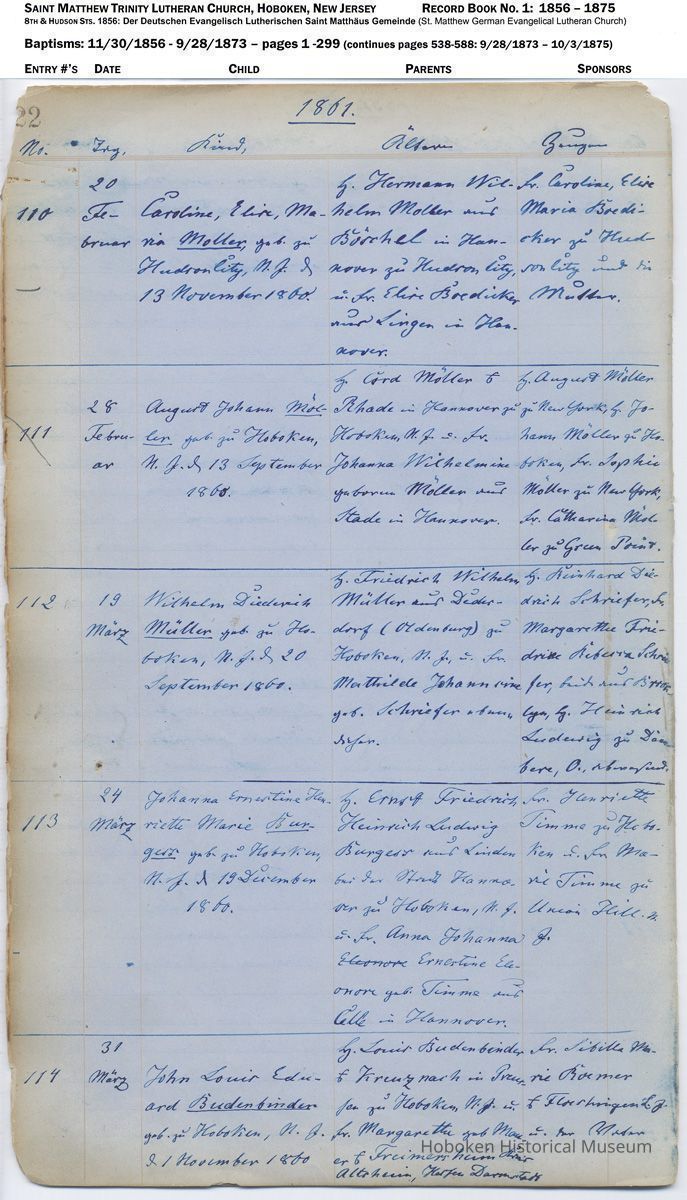 SAINT MATTHEW TRINITY LUTHERAN CHURCH, HOBOKEN, NEW JERSEY RECORD BOOK NO. 1: 1856 – 1875
8TH & HUDSON STS. 1856: Der Deutschen Evangelisch Lutherischen Saint Matthäus Gemeinde (St. Matthew German Evangelical Lutheran Church)
Baptisms: 11/30/1856 - 9/28/1873 – pages 1 -299 (continues pages 538-588: 9/28/1873 – 10/3/1875)
ENTRY #'S DATE CHILD PARENTS SPONSORS
22
1861.
No. Tag, Kind, Ältern Zeugen
110
20
Fe-
bruar
Caroline, Elise, Ma-
ria Moller, geb. zu
Hudson City, N. J. d
13 November 1860.
H. Hermann Wil-
helm Moller aus
in Han-
nover zu Hudson City,
u. Fr. Elise Boedicker
aus Lingen in Han-
nover.
Fr. Caroline, Elise
Maria Boedi-
cker zu Hud-
son City und die
Mutter.
111
28
Febru-
ar
August Johann Möl-
ler geb. zu Hoboken,
N. J. d 13 September
1860.
H. Cord Möller
Rhade in Hannover zu
Hoboken, N. J. u. Fr.
Johanna Wilhelmine
geboren Möller aus
Stade in Hannover.
H. August Möller
zu New York, H. Jo-
hann Möller zu Ho-
boken, Fr. Sophie
Möller zu New York,
Fr. Catharina Möl-
ler zu Green Point.
112
19
März
Wilhelm Diederich
Müller geb. zu Ho-
boken, N. J. d 20
September 1860.
H. Friedrich Wilhelm
Müller aus Dedes-
dorf (Oldenburg) zu
Hoboken, N. J., u. Fr.
Mathilde Johannsine
geb. Schriefer eben-
daher.
H. Reinhard Die-
drich Schriefer,
Margarethe Frie-
drike Rebecca Schrie-
fer, beide aus
H. Heinrich
Ludewig zu
O., abwesend.
113
24
März
Johanna Ernestine Hen-
riette Marie Bur-
gess geb. zu Hoboken,
N. J. d 19 December
1860.
H. Ernst Friedrich
Heinrich Ludwig
Burgess aus Linden
bei der Stadt Hanno-
ver zu Hoboken, N. J.
u. Fr. Anna Johanna
Eleonore Ernestine Ele-
onore geb. Timme aus
Celle in Hannover.
Fr. Henriette
Timme zu Hobo-
ken u. Fr. Ma-
rie Timme zu
Union Hill N.
J.
114
31
März
John Louis Edu-
ard Budenbinder
geb. zu Hoboken, N. J.
d. 1 November 1860
H. Louis Budenbinder
Kreuznach in Preus-
sen zu Hoboken N. J. u.
Fr. Margarethe geb.
Freimersheim
Hessen Darmstadt
Fr. Sibilla Ma-
rie Roemer
u. der Vater
Hoboken Historical Museum